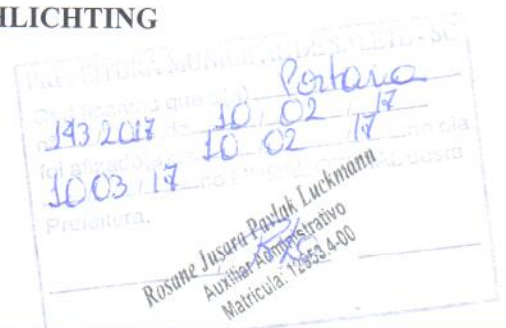 HLICHTING
PREFEITURA MUNICIPAL DE SALETE - SC
Certificamos que Portaria
193 2017 10 / 02 / 17
foi afixado 10 02 17 no dia
10 03 17 no MURAL desta
Prefeitura.
Rosane Jusara Pavlak Luckmann
Auxiliar Administrativo
Matrícula: 12953.4-00